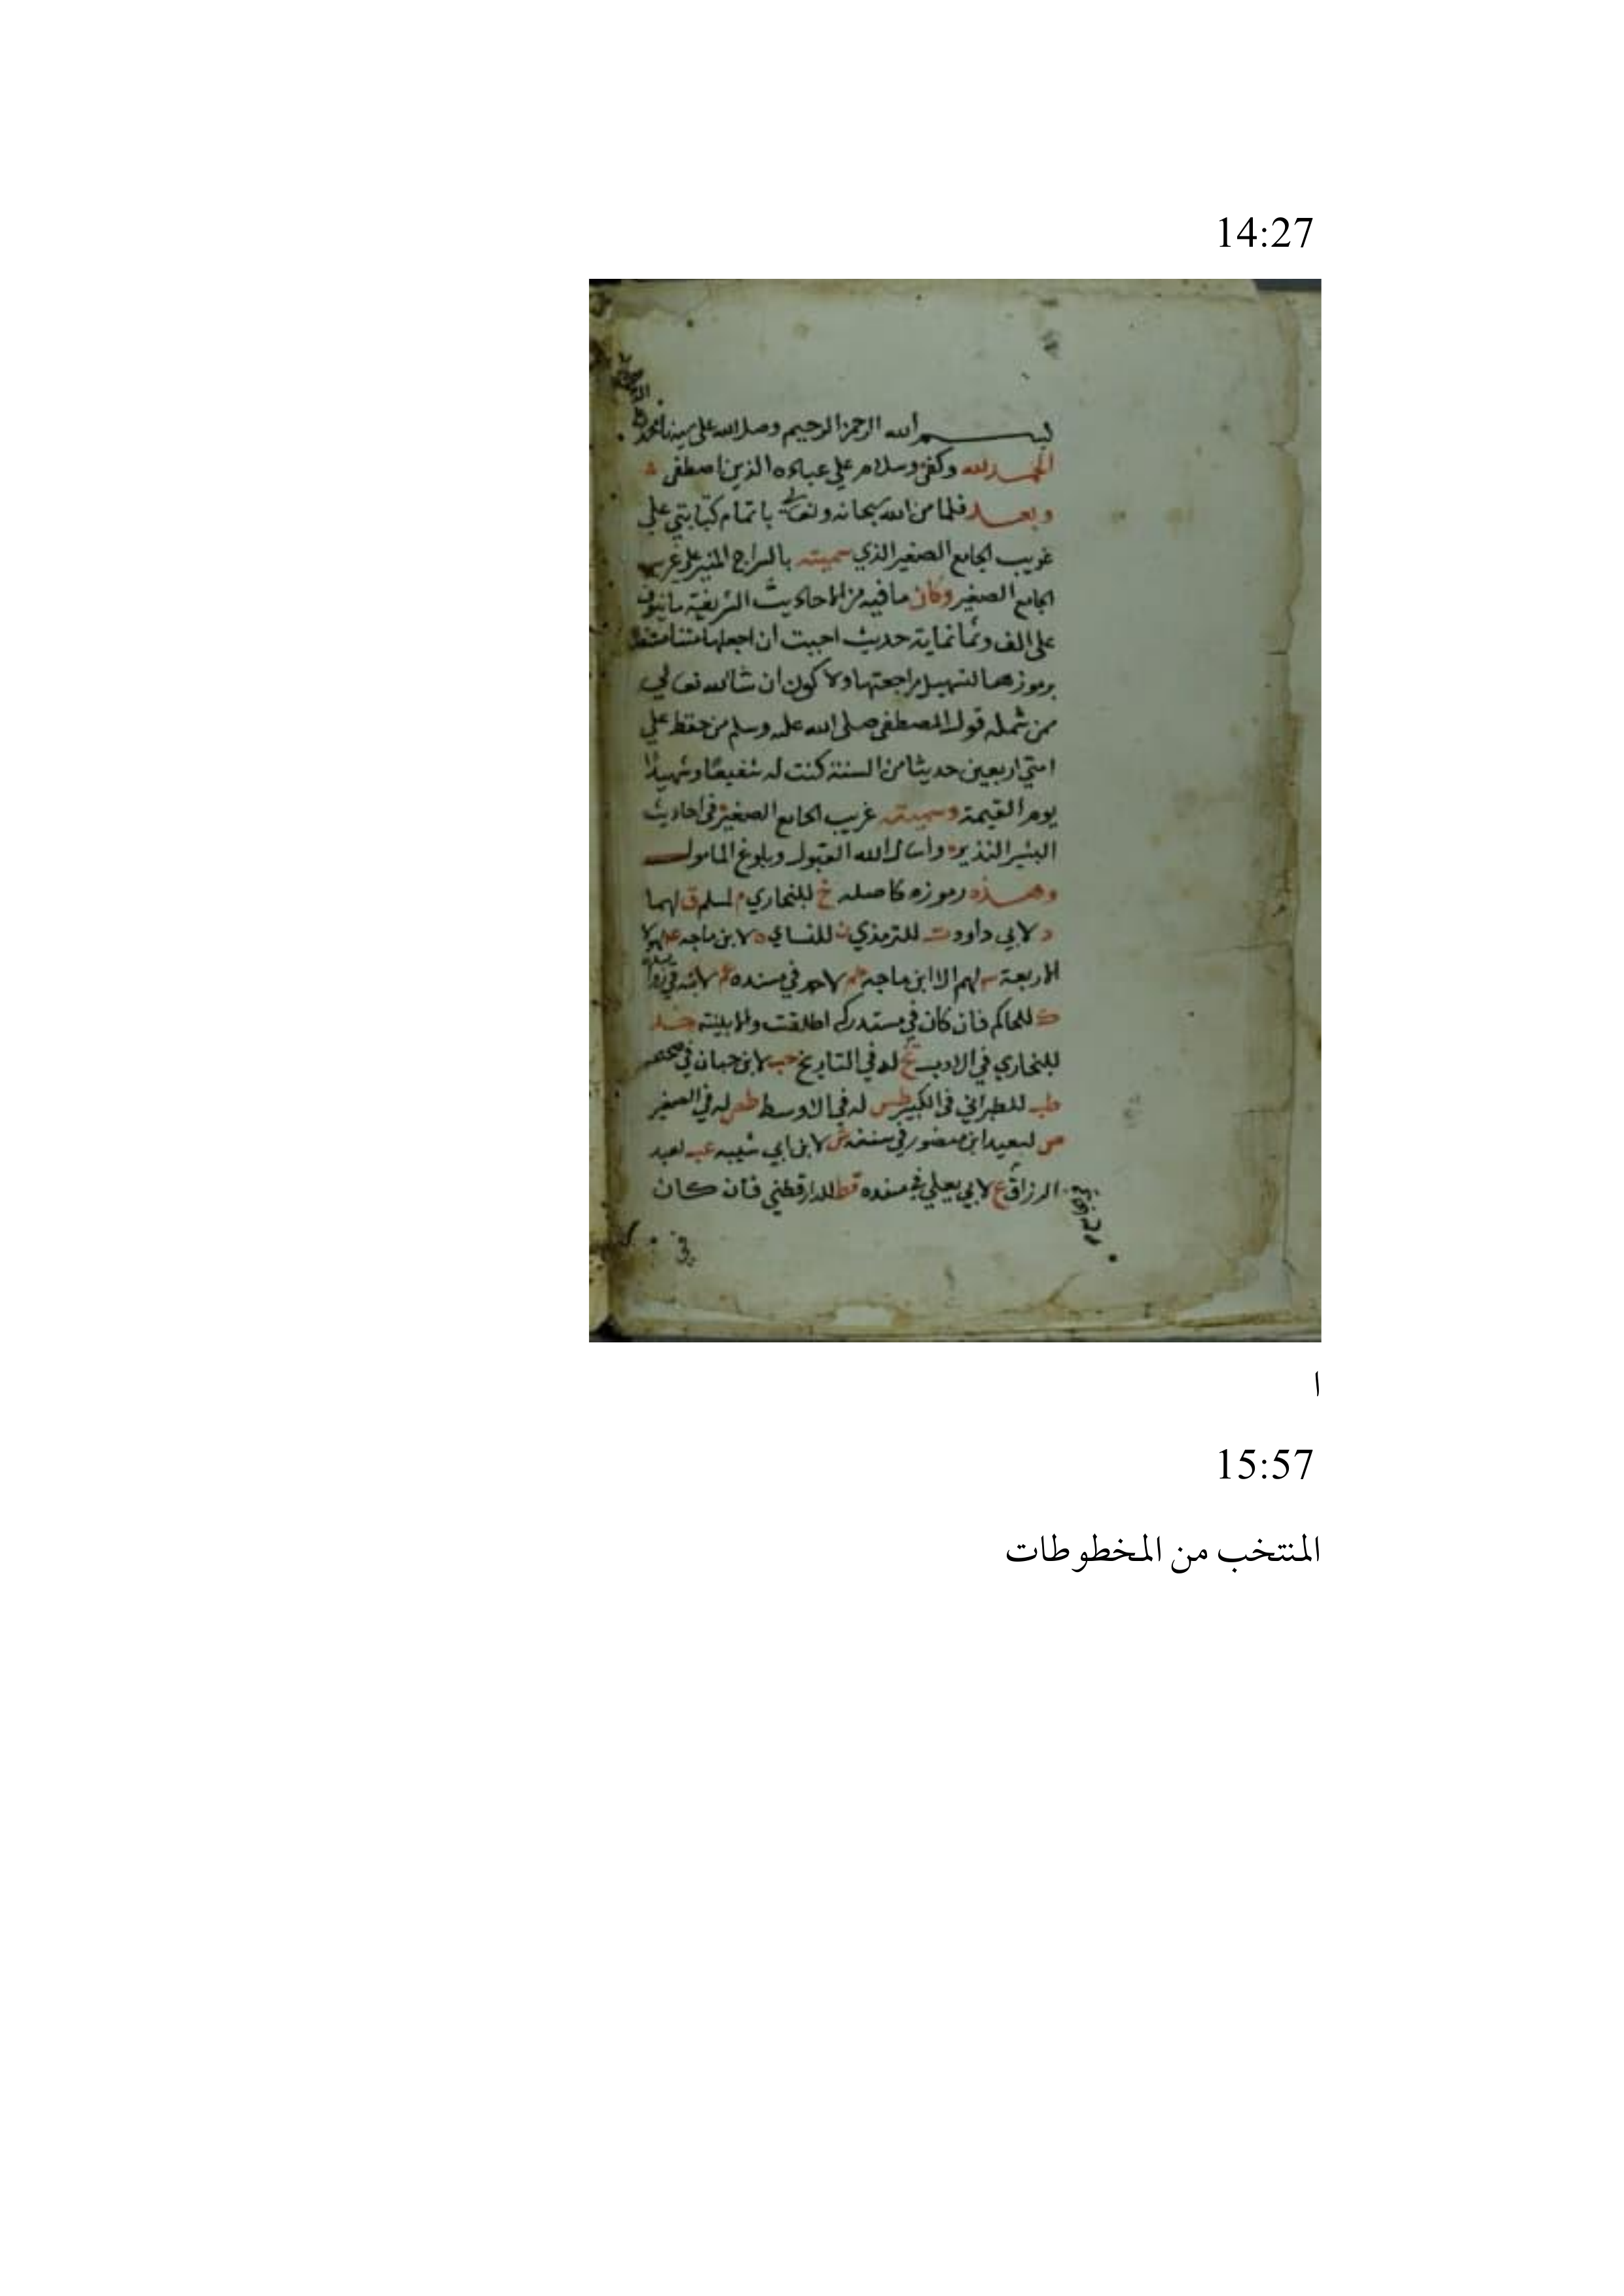 14:27
بسم الله الرحمن الرحيم وصلى الله على سيدنا محمد
الحمد لله وكفى وسلام على عباده الذين اصطفى
وبعد فلما من الله سبحانه وتعالى باتمام كتابتي على
غريب الجامع الصغير الذي سميته بالسراج المنير على غريب
الجامع الصغير وكان ما فيه من الاحاديث الشريفة ما نيوف
على الف وثمانماية حديث احببت ان اجعلها متنا مستقلا
برموزها لتسهيل مراجعتها ولاكون ان شا الله تعالى
ممن شمله قول المصطفى صلى الله عليه وسلم من حفظ على
امتي اربعين حديثا من السنة كنت له شفيعا وشهيدا
يوم القيمة وسميته غريب الجامع الصغير في احاديث
البشير النذير واسال الله القبول وبلوغ المامول
وهذه رموزه كاصله خ للبخاري م لمسلم ق لهما
د لابي داود ت للترمذي ن للنساي ه لابن ماجه ٤ لهولا
الاربعة ٣ لهم الا ابن ماجه حم لاحمد في مسنده عم لابنه في
ك للحاكم فان كان في مستدركه اطلقت والا بينته خد
للبخاري في الادب تخ له في التاريخ حب لابن حبان في صحيحه
طب للطبراني في الكبير طس له في الاوسط طص له في الصغير
ص لسعيد ابن منصور في سننه ش لابن ابي شيبه عب لعبد
الرزاق ع لابي يعلي في مسنده قط للدارقطني فان كان
في
ا
15:57
المنتخب من المخطوطات